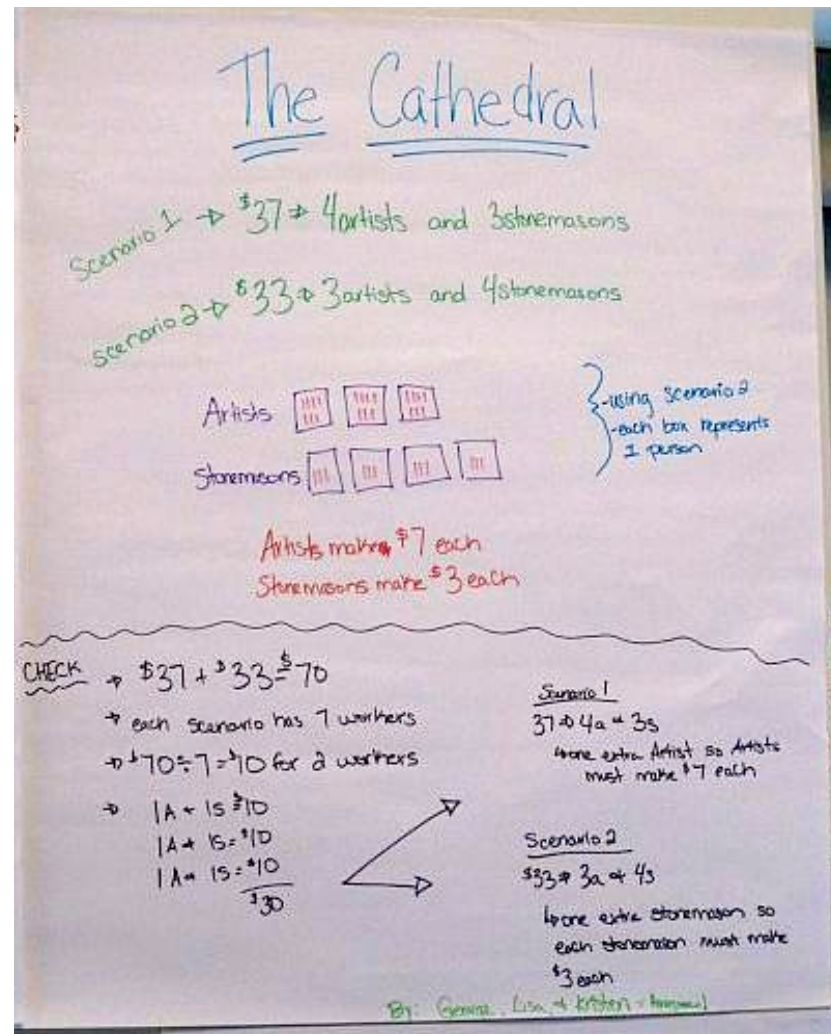 The Cathedral
Scenario 1 → $37 → 4artists and 3stonemasons
scenario 2 → $33 → 3artists and 4stonemasons
Artists
Stonemasons
-using scenario 2
-each box represents
1 person
Artists make $7 each
Stonemasons make $3 each
CHECK → $37 + $33 = $70
→ each scenario has 7 workers
→ $70 ÷ 7 = $10 for 2 workers
→ 1A + 1S = $10
1A + 1S = $10
1A + 1S = $10
$30
Scenario 1
37 → 4a + 3s
↳ one extra Artist so Artists
must make $7 each
Scenario 2
$33 → 3a + 4s
↳ one extra stonemason so
each stonemason must make
$3 each
By: Lisa, + Kristen